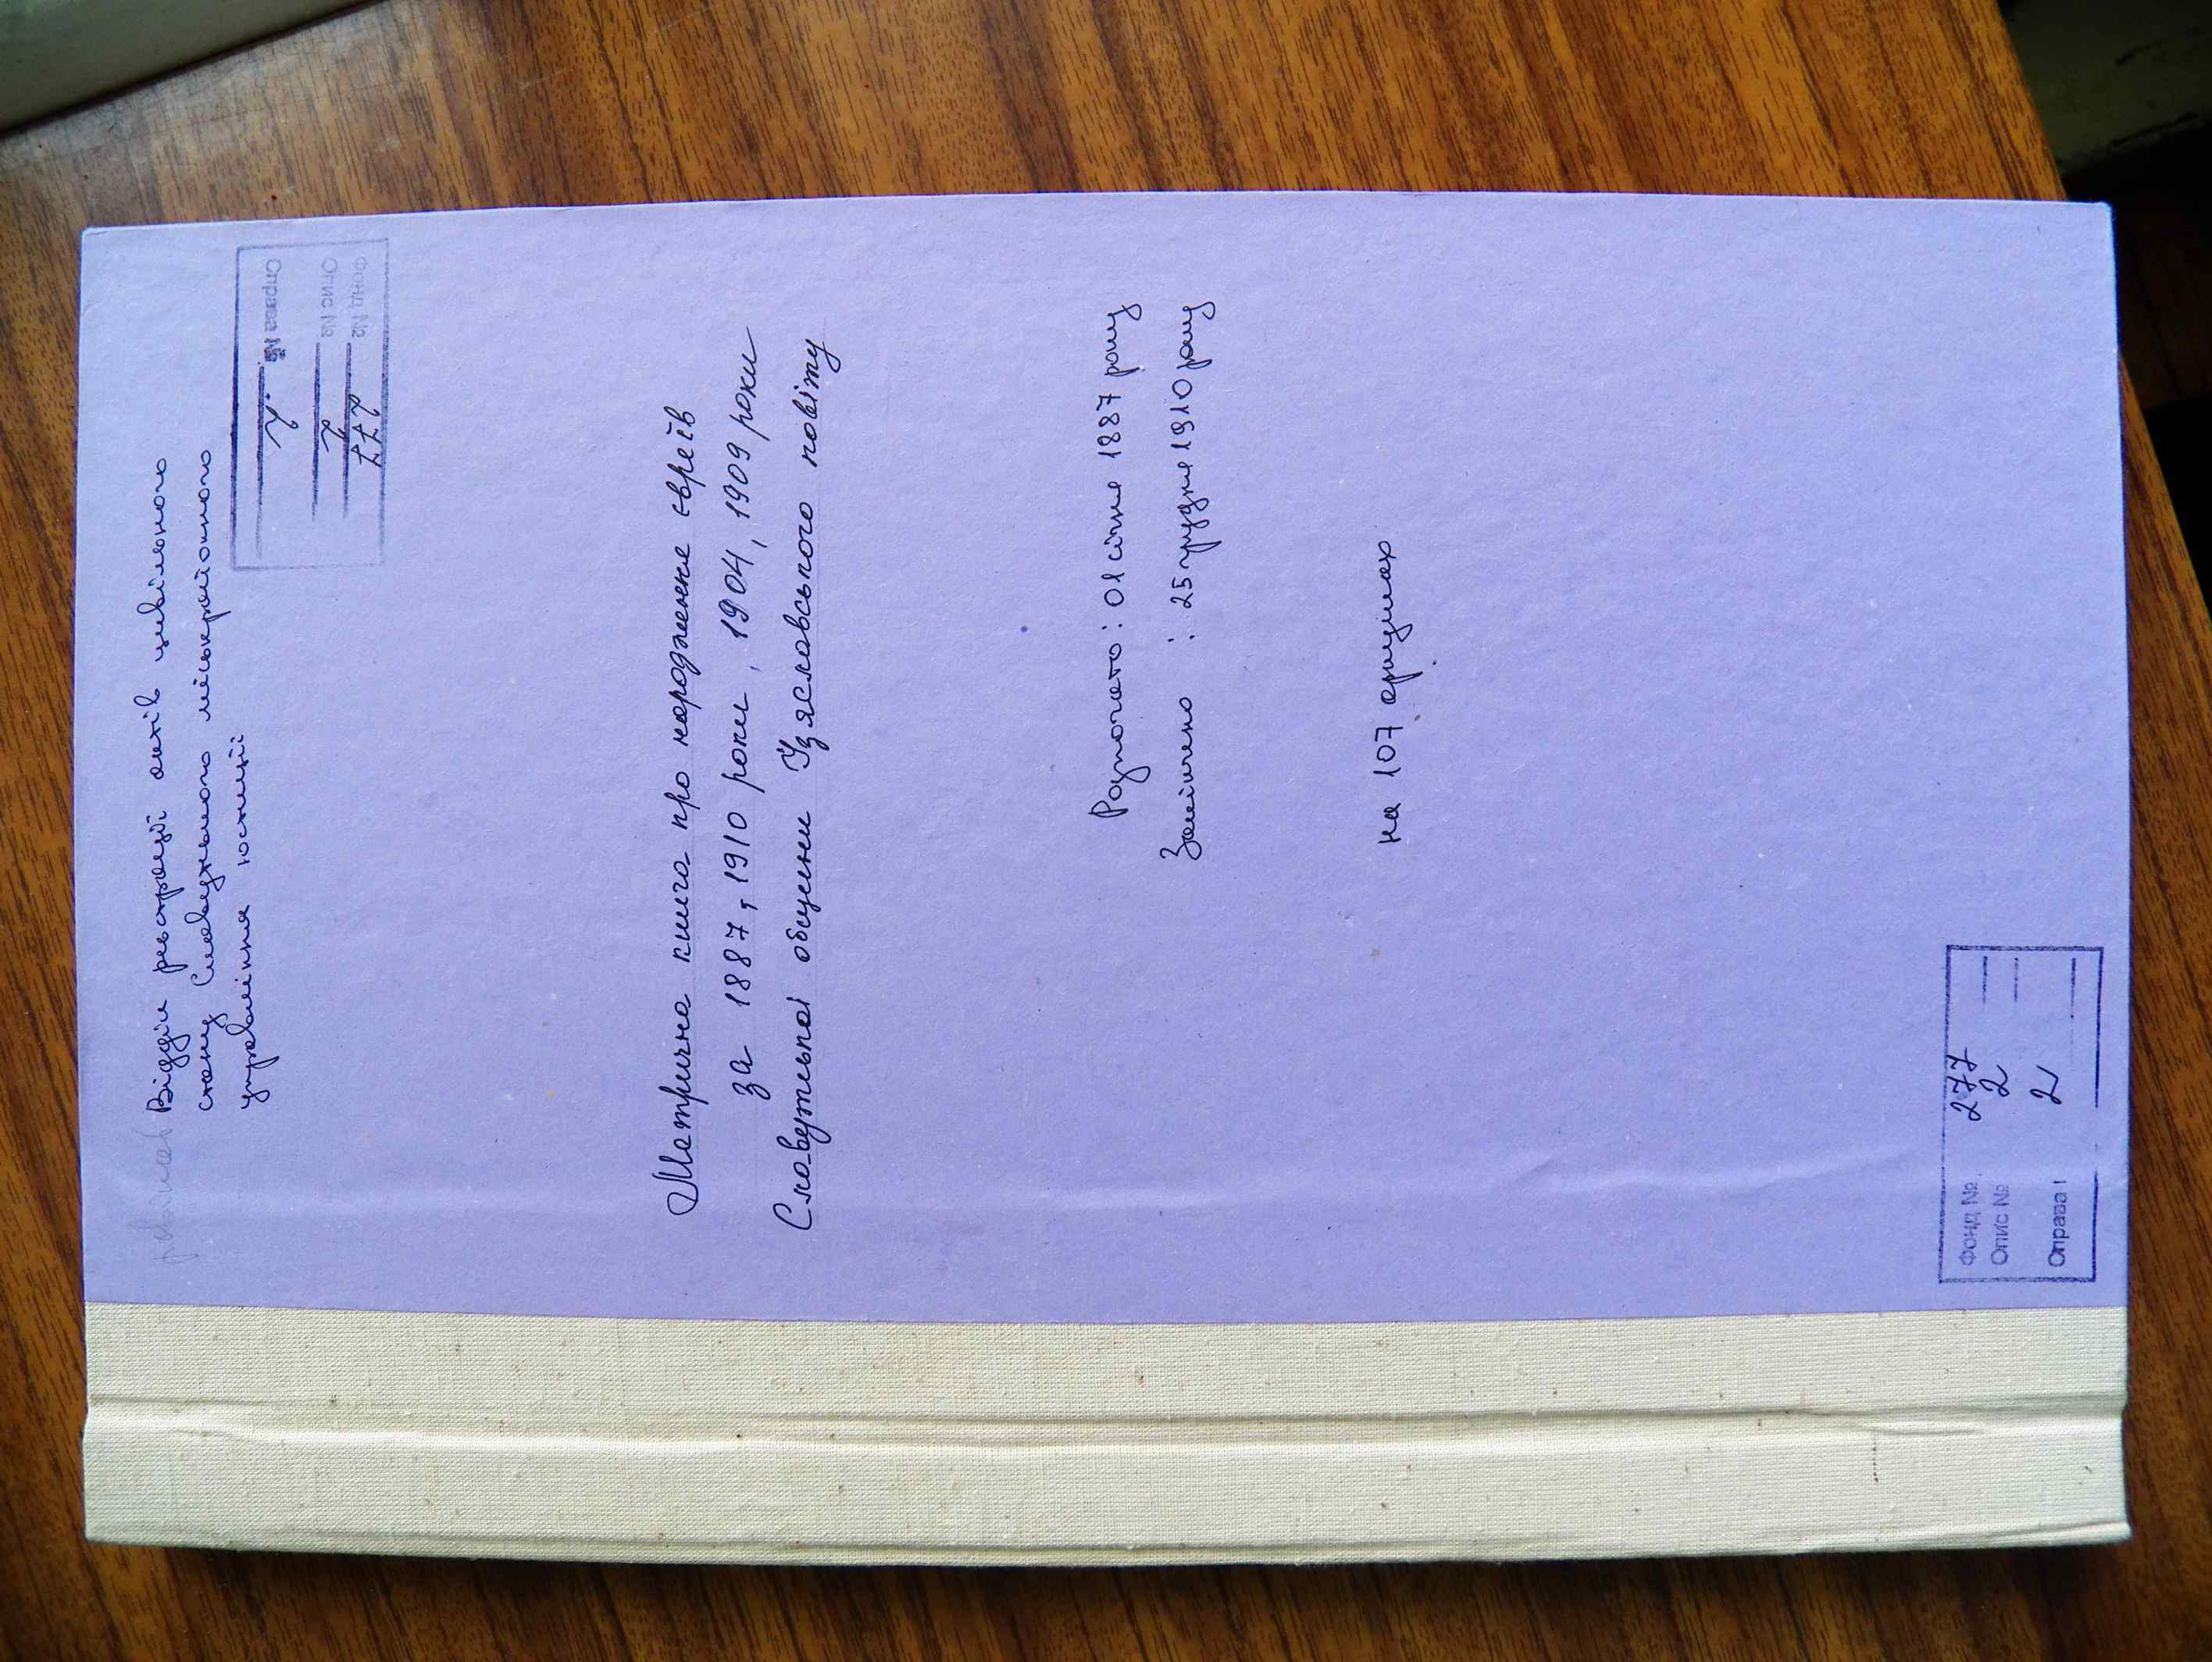 Відділ реєстрації актів цивільного
стану Славутського міськрайонного
управління юстиції
Фонд № 277
Опис № 2
Справа № 2
Метрична книга про народження євреїв
за 1887, 1910 роки, 1904, 1909 роки
Славутської общини Ізяславського повіту
Розпочато: 01 січня 1887 року
Закінчено : 25 грудня 1910 року
на 107 аркушах
Фонд № 277
Опис № 2
Справа 2